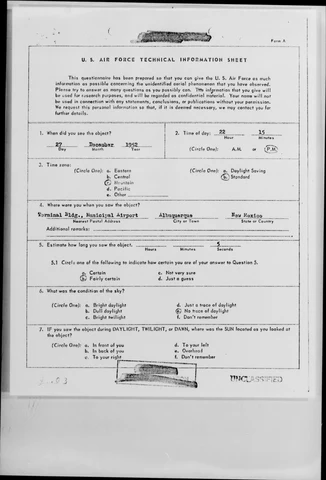 Form A
U. S. AIR FORCE TECHNICAL INFORMATION SHEET
This questionnaire has been prepared so that you can give the U. S. Air Force as much
information as possible concerning the unidentified aerial phenomenon that you have observed.
Please try to answer as many questions as you possibly can. The information that you give will
be used for research purposes, and will be regarded as confidential material. Your name will not
be used in connection with any statements, conclusions, or publications without your permission.
We request this personal information so that, if it is deemed necessary, we may contact you for
further details.
1. When did you see the object?
27 December 1952
Day Month Year
2. Time of day: 22 15
Hour Minutes
(Circle One): A.M. or P.M.
3. Time zone:
(Circle One): a. Eastern
b. Central
c. Mountain
d. Pacific
e. Other
(Circle One): a. Daylight Saving
b. Standard
4. Where were you when you saw the object?
Terminal Bldg., Municipal Airport Albuquerque New Mexico
Nearest Postal Address City or Town State or Country
Additional remarks:
5. Estimate how long you saw the object. 5
Hours Minutes Seconds
5.1 Circle one of the following to indicate how certain you are of your answer to Question 5.
a. Certain c. Not very sure
b. Fairly certain d. Just a guess
6. What was the condition of the sky?
(Circle One): a. Bright daylight d. Just a trace of daylight
b. Dull daylight e. No trace of daylight
c. Bright twilight f. Don't remember
7. IF you saw the object during DAYLIGHT, TWILIGHT, or DAWN, where was the SUN located as you looked at
the object?
(Circle One): a. In front of you d. To your left
b. In back of you e. Overhead
c. To your right f. Don't remember
UNCLASSIFIED